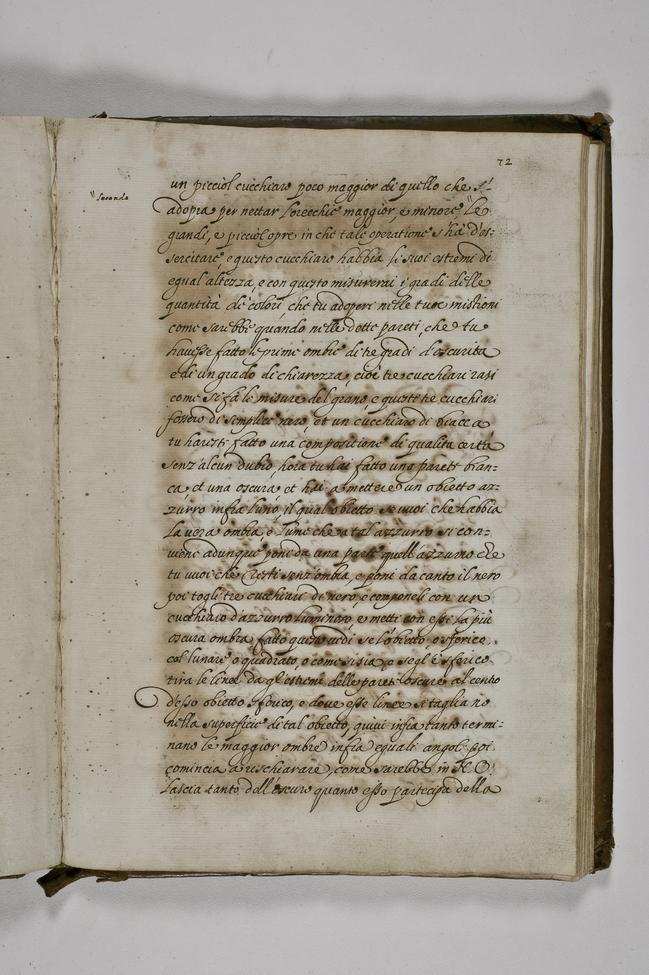 72
"secondo
un picciol cucchiaro poco maggior di quello che s'
adopra per nettar l'orecchie maggior, e minore "le
grandi, e picciol opre in che tale operatione s'hà d'es:
sercitare, e questo cucchiaro habbia li suoi estremi di
egual altezza, e con questo misurerai i gradi delle
quantità de colori, che tu adoperi nelle tue mistioni
come sarebbe quando nelle dette pareti, che tu
havesse fatto le prime ombre di tre gradi d'oscurita
e di un grado di chiarezza, cioè tre cucchiari rasi
come si fà le misure del grano e queste tre cucchiari
fossero di semplice nero, et un cucchiaro di biacca
tu haresti fatto una compositione di qualita certa
senz'alcun dubio, hora tu hai fatto una parete bian:
ca et una oscura, et hai a mettere un obietto az:
zurro infra luno, il qual obietto se vuoi che habbia
la vera ombra, e lume che a tal azzurro si con:
viene adunque poni da una parte quell'azzurro che
tu vuoi che resti senz'ombra, e poni da canto il nero
poi togli tre cucchiari di nero, e componeli con un
cucchiaro d'azzurro luminoso, e metti con esse la più
oscura ombra, fatto questo vedi se l'obietto è sferico
col lunare o quadrato, o come si sia, e s'egl'è sferico
tira le linee da gl'estremi delle parete oscure al cento
d'esso obietto sferico, e dove esse linee si tagliano
nella superficie di tal obietto, quivi infra tanto termi:
nano le maggior ombre infra eguali angoli, poi
comincia a rischiarare, come sarebbe in
lascia tanto dell'oscuro quanto esso partecipa della